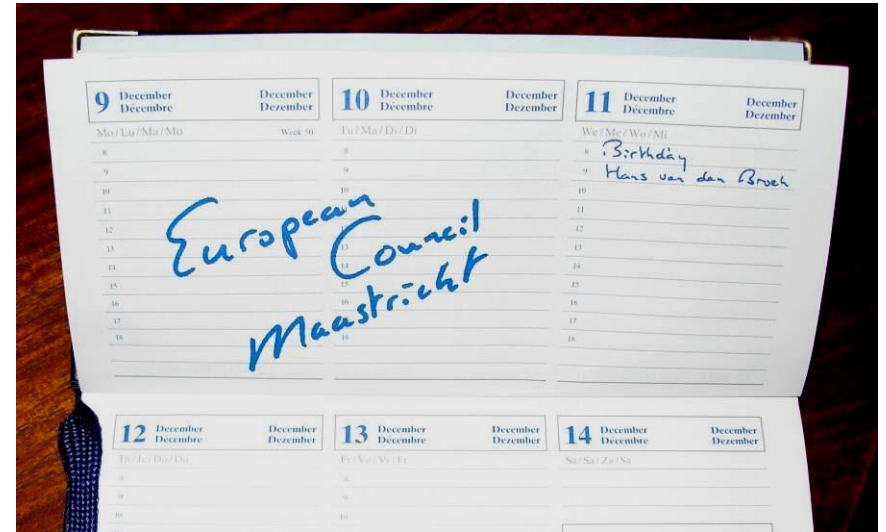 9 December December
Décembre Dezember
Mo/Lu/Ma/Mo Week 50
8
9
10
11
12
13
14
15
16
17
18
10 December December
Décembre Dezember
Tu/Ma/Di/Di
8
9
10
13
14
15
16
European
Council
Maastricht
11 December December
Décembre Dezember
We/Me/Wo/Mi
8 Birthday
9 Hans van den Broek
10
11
12
13
14
15
16
17
18
12 December December
Décembre Dezember
Th/Je/Do/Do
8
9
10
13 December December
Décembre Dezember
Fr/Ve/Vr/Fr
8
9
10
14 December December
Décembre Dezember
Sa/Sa/Za/Sa